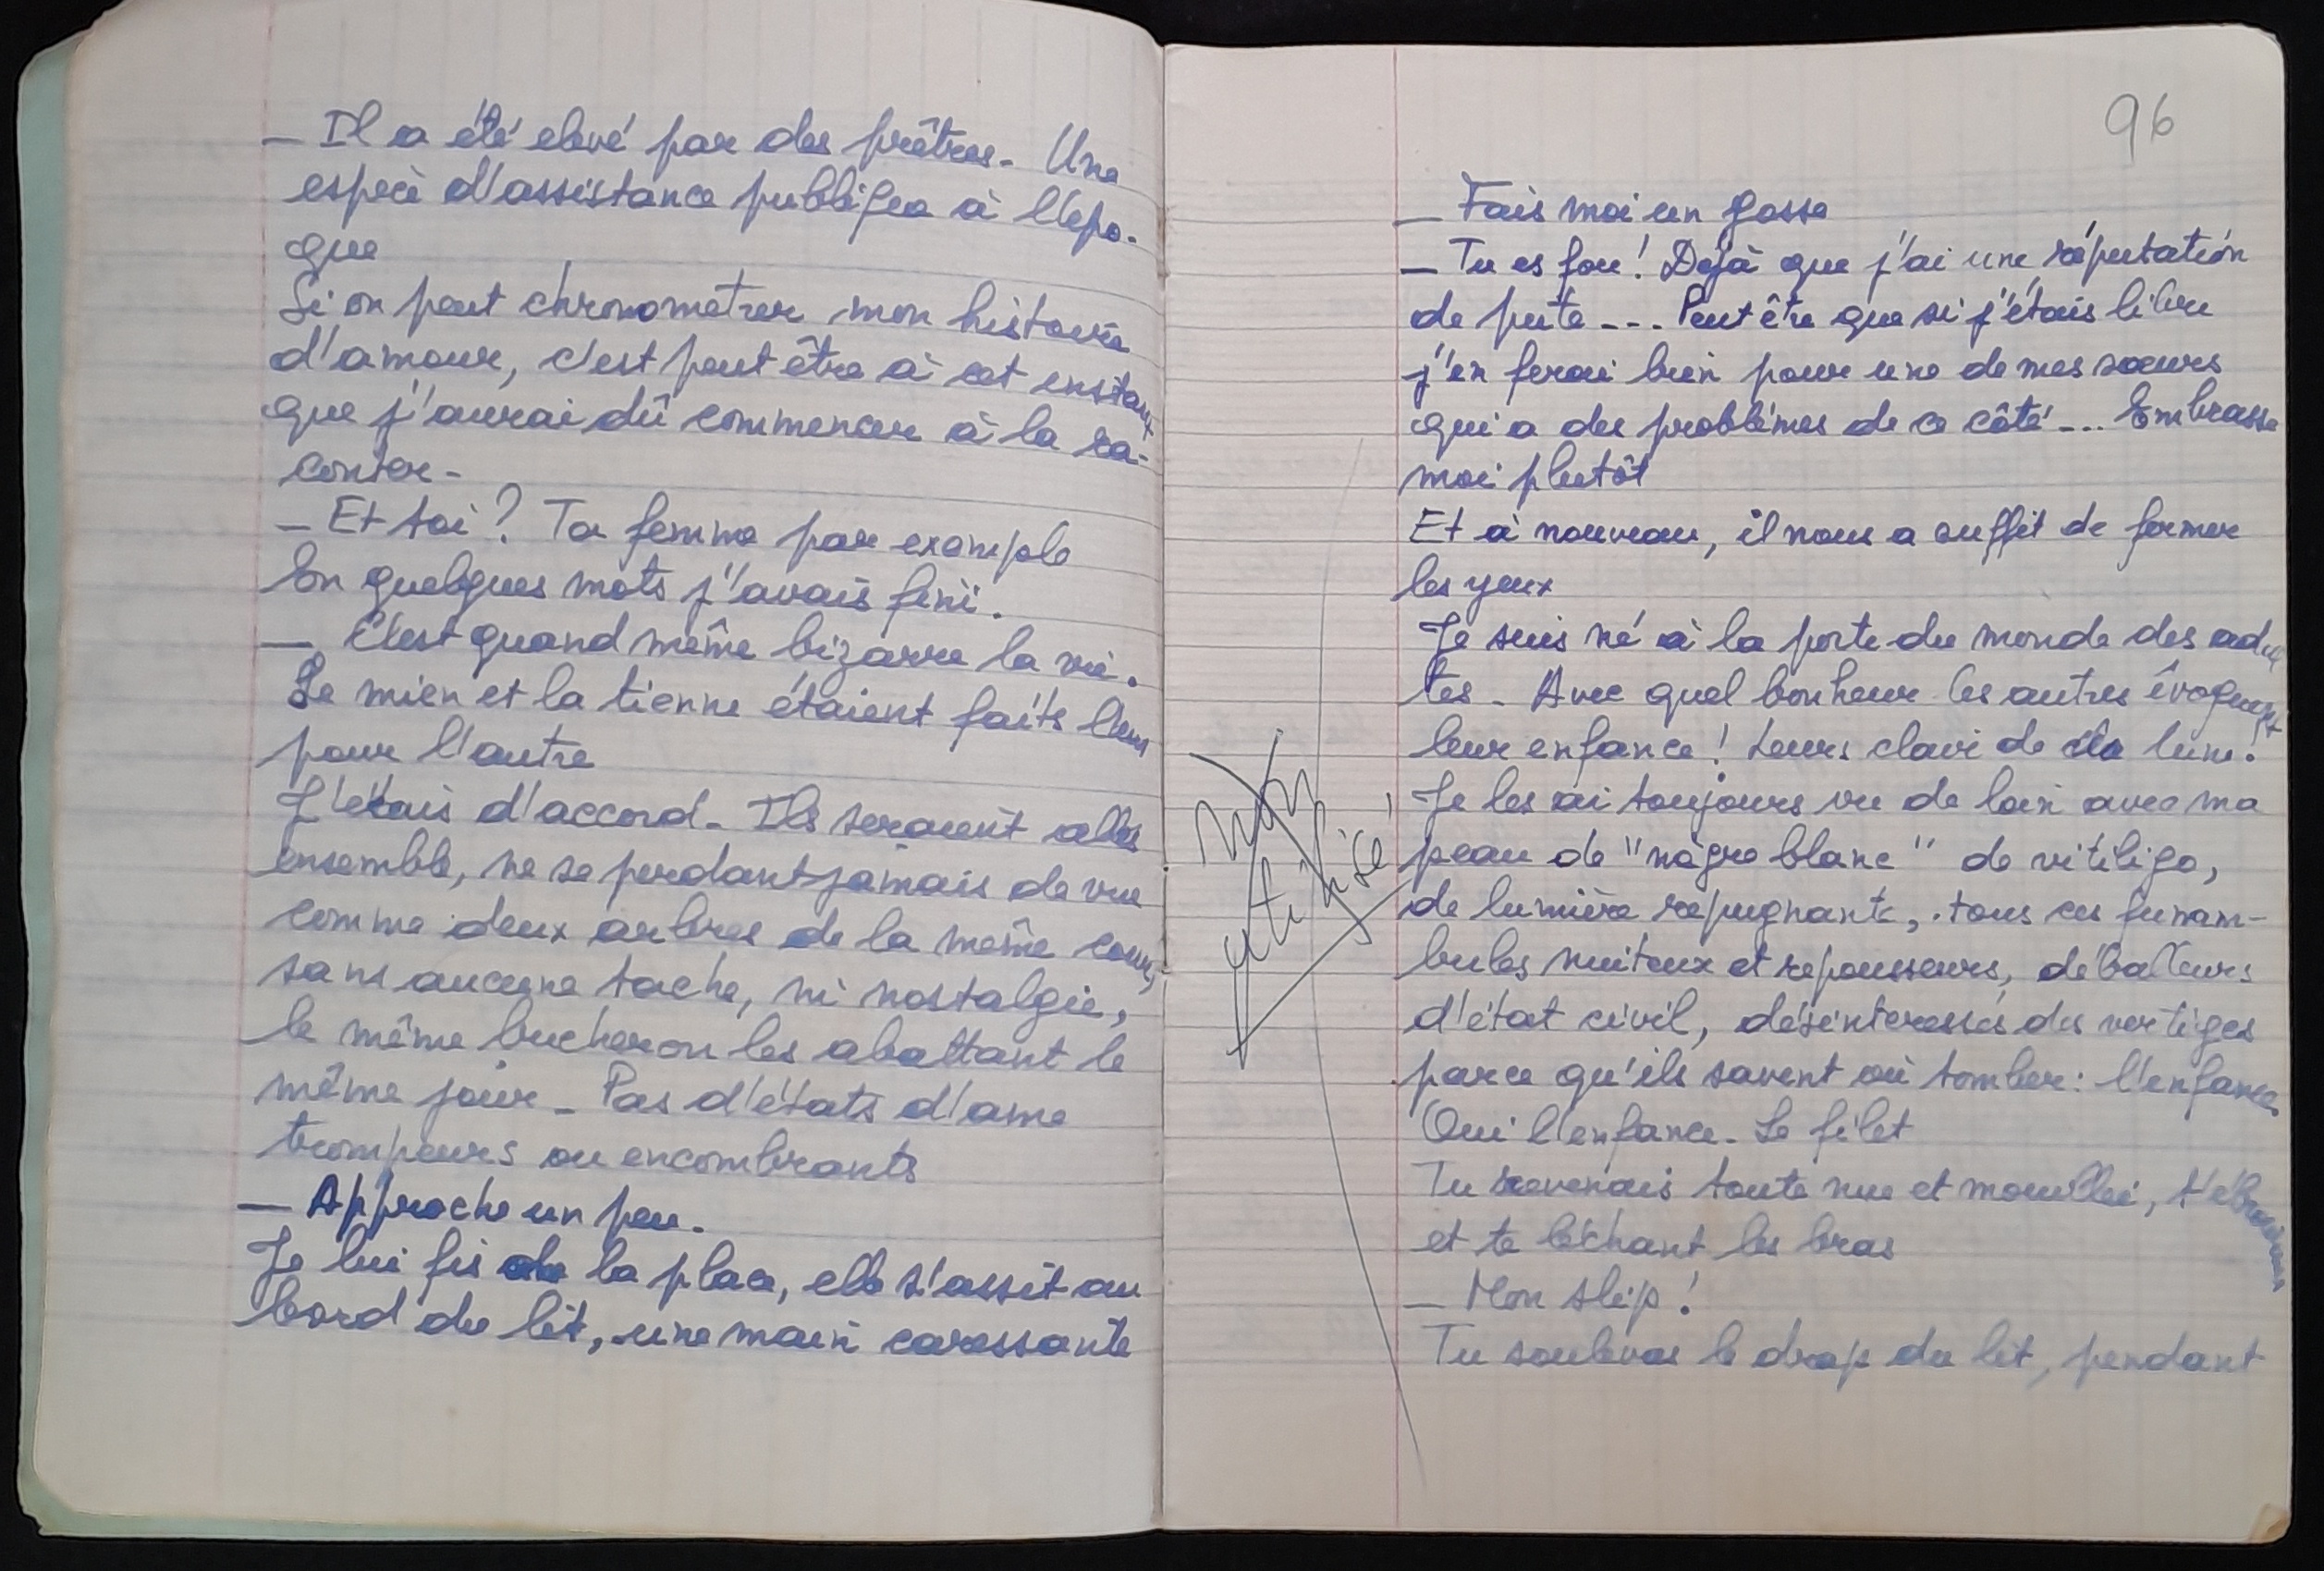 — Il a été elevé par des prêtres - Une
espèce d'assistance publique à l'épo-
que
Si on peut chronometrer mon histoire
d'amour, c'est peut être à cet instant
que j'aurai dû commencer à la ra-
conter -
— Et toi ? Ta femme par exemple
En quelques mots j'avais fini.
— C'est quand même bizarre la vie.
Le mien et la tienne étaient faits l'un
pour l'autre
J'étais d'accord - Ils seraient allés
ensemble, ne se perdant jamais de vue
comme deux arbres de la même cour,
sans aucune tache, ni nostalgie,
le même bucheron les abattant le
même jour - Pas d'états d'ame
trompeurs ou encombrants
— Approche un peu.
Je lui fis de la place, elle s'assit au
bord du lit, une main caressante
96
— Fais moi un gosse
— Tu es fou ! Déjà que j'ai une réputation
de pute --- Peut être que si j'étais libre
j'en ferai bien pour une de mes sœurs
qui a des problèmes de ce côté --- Embrasse
moi plutôt
Et à nouveau, il nous a suffit de fermer
les yeux
Je suis né à la porte du monde des adul
tes - Avec quel bonheur les autres évoquent
leur enfance ! Leurs clair de la lune !
Je les ai toujours vu de loin avec ma
peau de "nègre blanc" de vitiligo,
de lumière répugnante, tous ces funam-
bules nuiteux et repousseurs, déballeurs
d'état civil, désinteressés des vertiges
parce qu'ils savent où tomber : l'enfance
Oui l'enfance - Le filet
Tu revenais toute nue et mouillée,
et te léchant les bras
— Mon slip !
Tu soulevas le drap du lit, pendant
non
utilisé